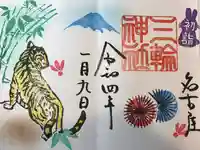 初詣
名古屋
三輪
神社
令和四年
一月九日